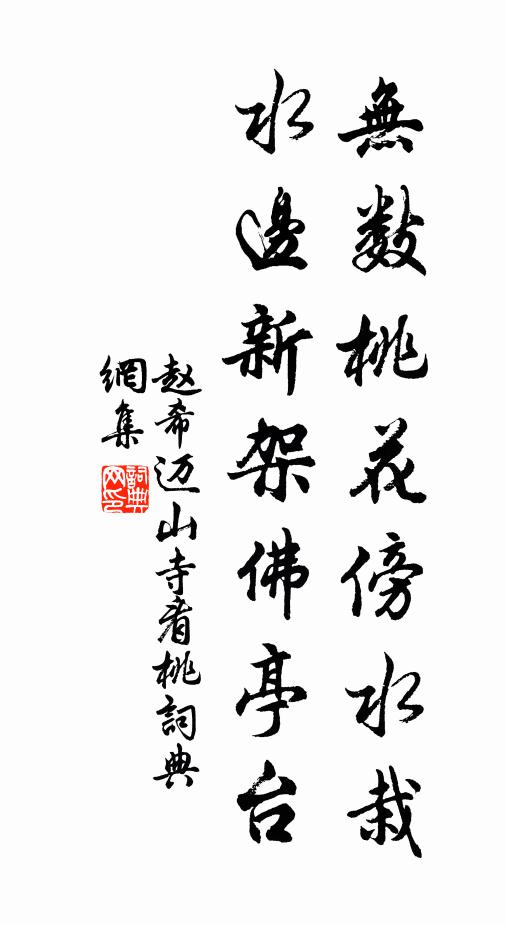 無數桃花傍水栽
水邊新架佛亭台
赵希迈山寺看桃詞典
網集
詞典
网印